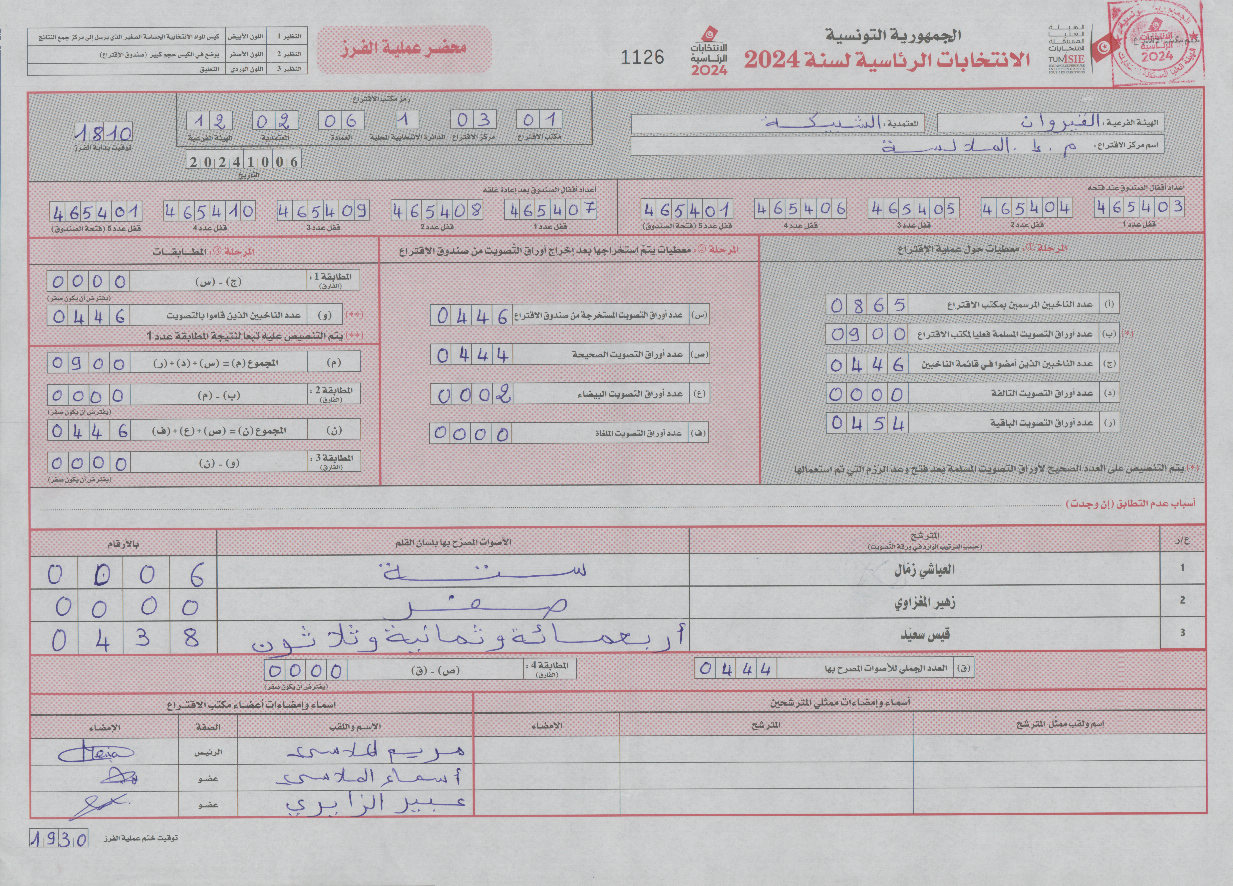 الجمهورية التونسية
الانتخابات الرئاسية لسنة 2024
الانتخابات الرئاسية 2024
1126
محضر عملية الفرز
النظير 1 اللون الأبيض كيس المواد الانتخابية الحساسة الصغير الذي يرسل إلى مركز جمع النتائج
النظير 2 اللون الأصفر يوضع في الكيس حجم كبير (صندوق الاقتراع)
النظير 3 اللون الوردي التعليق
الهيئة الفرعية: القيروان
المعتمدية: الشبيكة
اسم مركز الاقتراع: م.إ. الملالسة
رمز مكتب الاقتراع
01 03 1 06 02 12
مكتب الاقتراع مركز الاقتراع الدائرة الانتخابية المحلية العمادة المعتمدية الهيئة الفرعية
20241006
التاريخ
1810
توقيت بداية الفرز
أعداد أقفال الصندوق عند فتحه
465403 465404 465405 465406 465401
قفل عدد 1 قفل عدد 2 قفل عدد 3 قفل عدد 4 قفل عدد 5 (فتحة الصندوق)
أعداد أقفال الصندوق بعد إعادة غلقه
465407 465408 465409 465410 465401
قفل عدد 1 قفل عدد 2 قفل عدد 3 قفل عدد 4 قفل عدد 5 (فتحة الصندوق)
المرحلة 1: معطيات حول عملية الاقتراع
(أ) عدد الناخبين المرسمين بمكتب الاقتراع 0865
(*) (ب) عدد أوراق التصويت المسلمة فعليا لمكتب الاقتراع 0900
(ج) عدد الناخبين الذين أمضوا في قائمة الناخبين 0446
(د) عدد أوراق التصويت التالفة 0000
(ر) عدد أوراق التصويت الباقية 0454
(*) يتم التنصيص على العدد الصحيح لأوراق التصويت المسلمة بعد فتح وعد الرزم التي تم استعمالها
المرحلة 2: معطيات يتم استخراجها بعد إخراج أوراق التصويت من صندوق الاقتراع
(س) عدد أوراق التصويت المستخرجة من صندوق الاقتراع 0446
(ص) عدد أوراق التصويت الصحيحة 0444
(ع) عدد أوراق التصويت البيضاء 0002
(ف) عدد أوراق التصويت الملغاة 0000
المرحلة 3: المطابقات
المطابقة 1: (الفارق) (ج) - (س) 0000
(يفترض أن يكون صفر)
(**) (و) عدد الناخبين الذين قاموا بالتصويت 0446
(**) يتم التنصيص عليه تبعا لنتيجة المطابقة عدد 1
(م) المجموع (م) = (س) + (د) + (ر) 0900
المطابقة 2: (الفارق) (ب) - (م) 0000
(يفترض أن يكون صفر)
(ن) المجموع (ن) = (ص) + (ع) + (ف) 0446
المطابقة 3: (الفارق) (و) - (ن) 0000
(يفترض أن يكون صفر)
أسباب عدم التطابق (إن وجدت)
ع/ر المترشح (حسب الترتيب الوارد في ورقة التصويت) الأصوات المصرح بها بلسان القلم بالأرقام
1 العياشي زمّال ستة 0006
2 زهير المغزاوي صفر 0000
3 قيس سعيّد أربعمائة وثمانية وثلاثون 0438
(ق) العدد الجملي للأصوات المصرح بها 0444
المطابقة 4: (الفارق) (ص) - (ق) 0000
(يفترض أن يكون صفر)
أسماء وإمضاءات ممثلي المترشحين
اسم ولقب ممثل المترشح المترشح الإمضاء
أسماء وإمضاءات أعضاء مكتب الاقتراع
الاسم واللقب الصفة الإمضاء
مريم الملاسي الرئيس
أسماء الملاسي عضو
عبير الزايري عضو
توقيت ختم عملية الفرز 1930